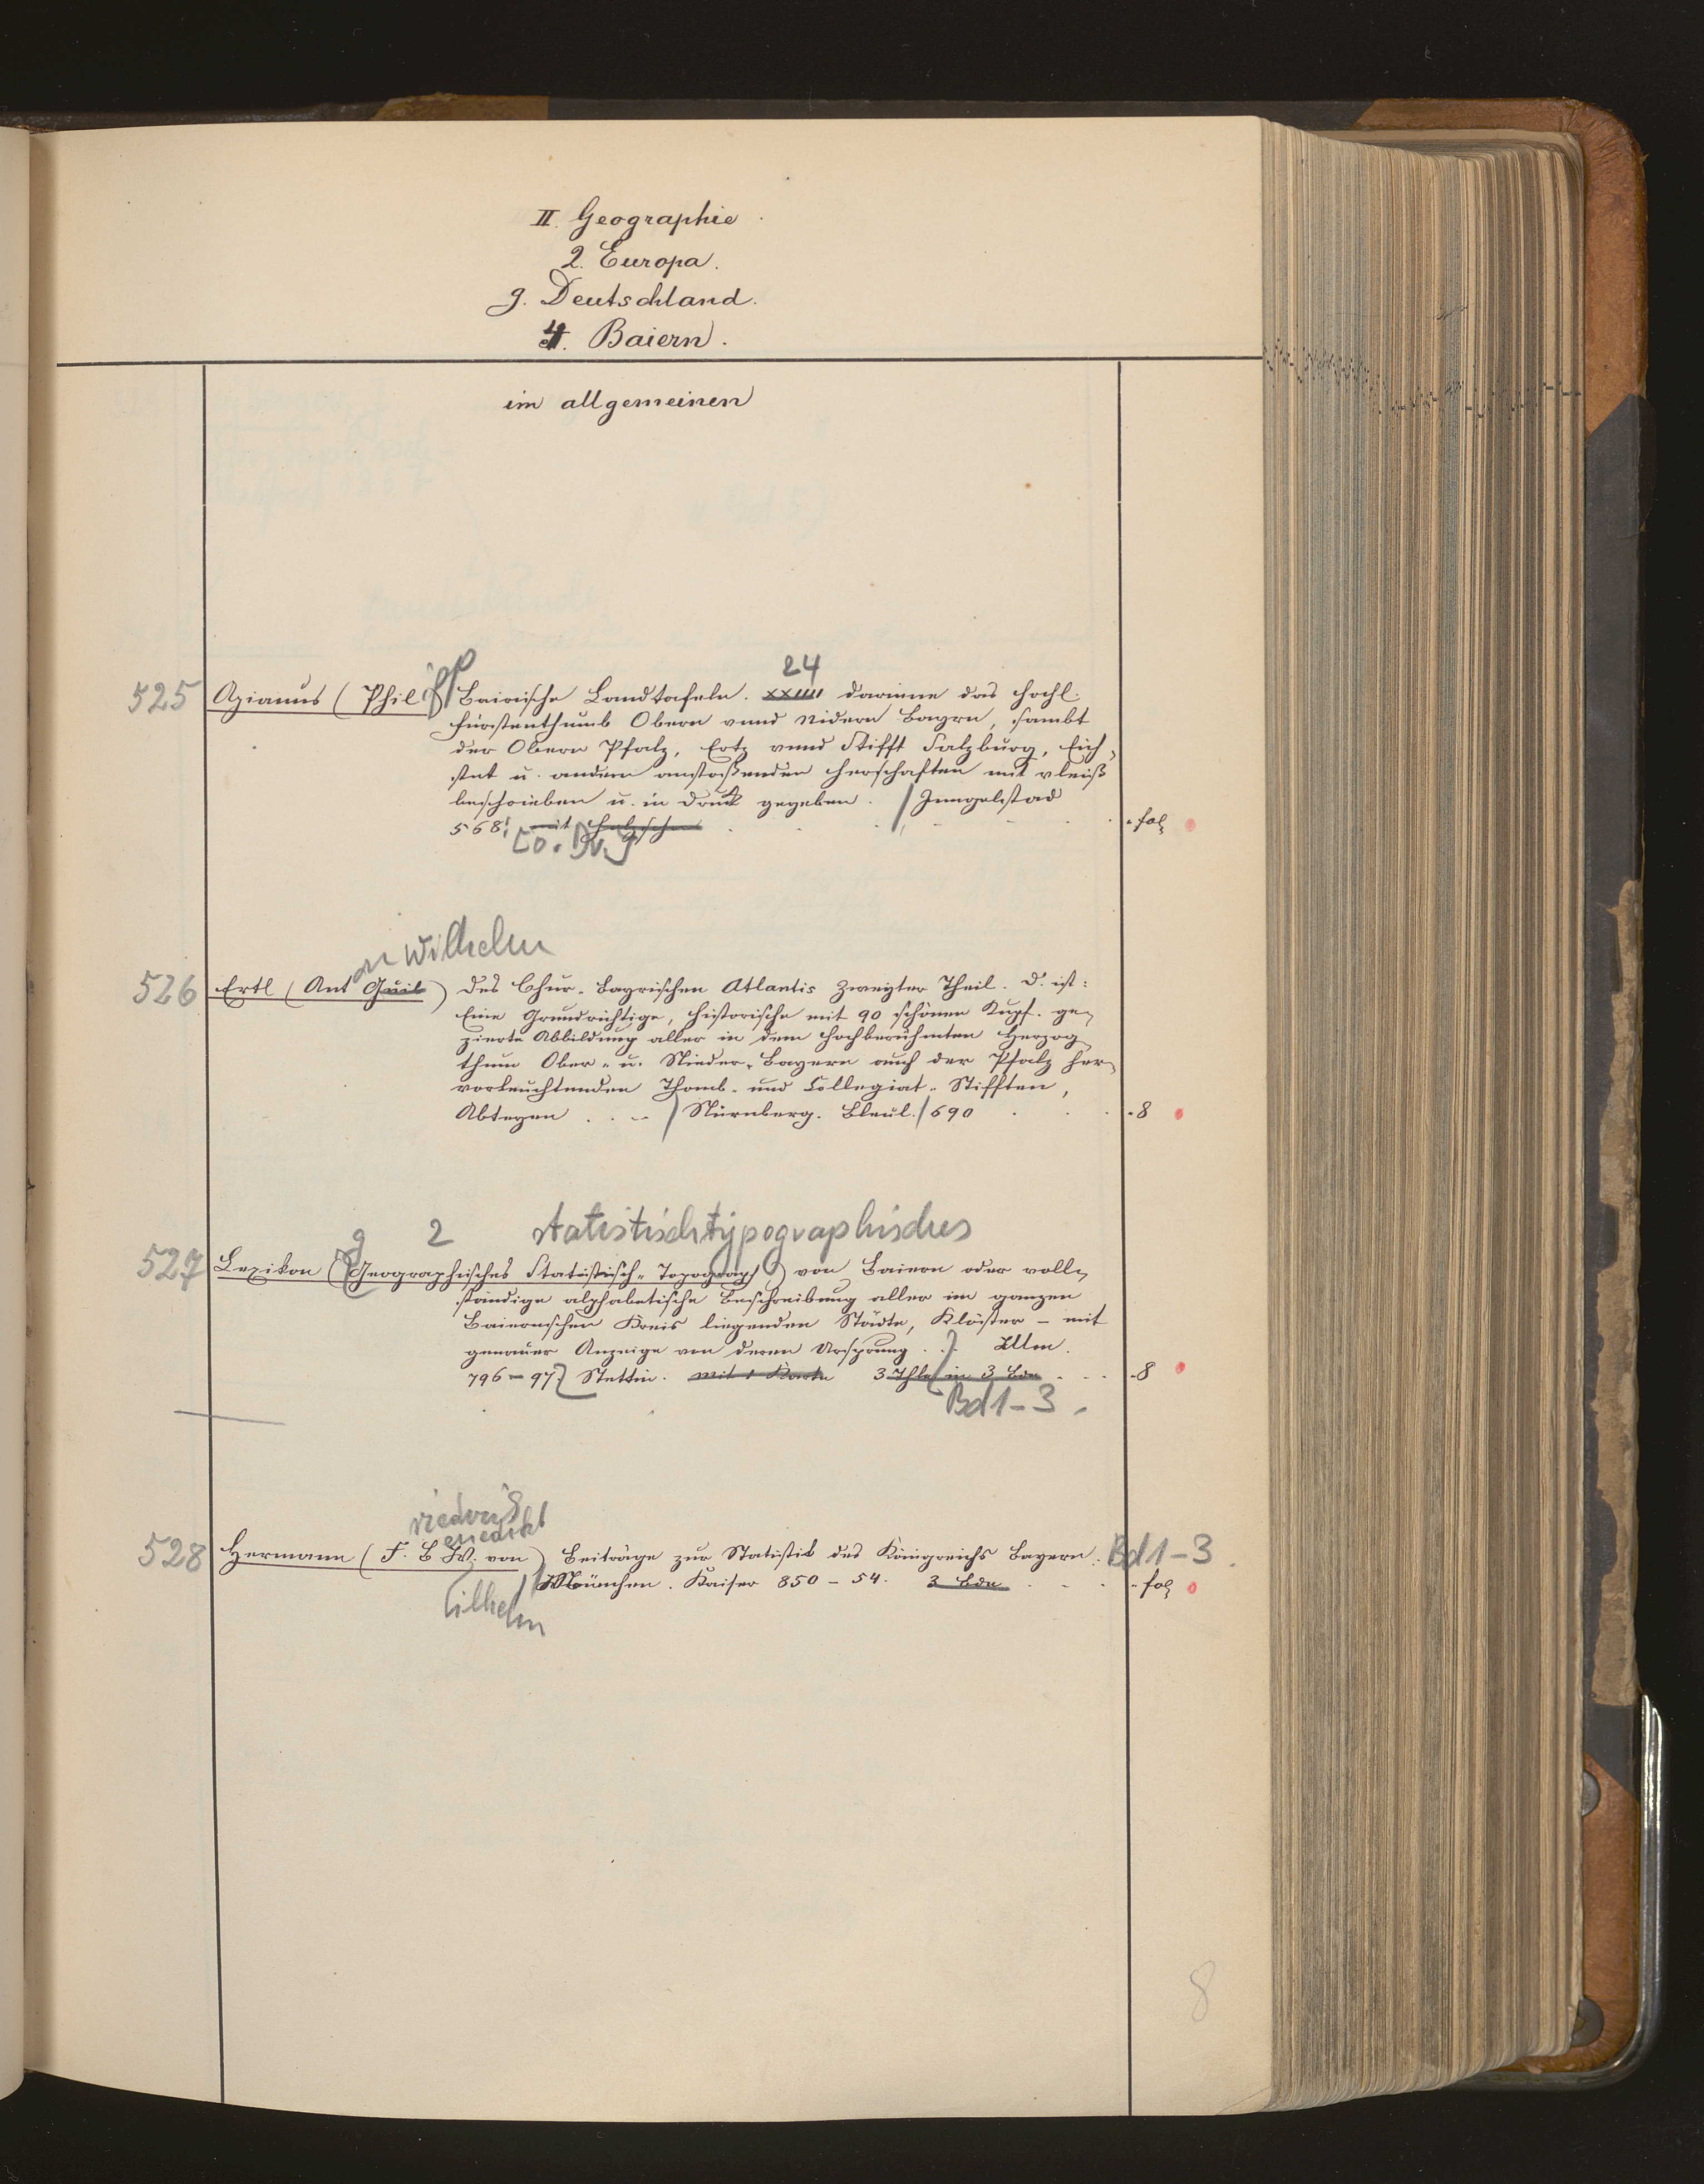 II. Geographie
2. Europa.
g. Deutschland.
4. Baiern.
im allgemeinen
24
525 Apianus (Philipp) Bairische Landtafeln. XXIIII darinne das Hochl.
Fürstenthumb Obern vnnd Nidern Bayrn, sambt
der Obern Pfalz, Ertz vnnd Stifft Salzburg, Eich-
stet u. andern anstoßenden Herschaften mit vleiß
beschrieben u. in Druck gegeben. / Inngolstad
568! mit Holzschn . . . fol
on Wilhelm
526 Ertl (Ant Guil) Des Chur-Bayrischen Atlantis Zweyter Theil. D. ist:
Eine Grundrichtige, historische mit 90 schönen Kupf. ge-
zierte Abbildung aller in dem hochberühmten Herzog
thum Ober- u. Nieder-Bayern auch der Pfalz her-
vorleuchtenden Thomb- und Collegiat-Stifften,
Abteyen . . - / Nürnberg. Bleul. / 690 . . . 8
g 2 statistischtypographisches
527 Lexikon (Geographisches Statistisch-Topograph) von Baiern oder voll-
ständige alphabetische Beschreibung aller im ganzen
Baiernschen Kreis liegenden Städte, Klöster - mit
genauer Anzeige von deren Ursprung . . Ulm.
796-97. Stettin. mit 1 Karte 3 Thle in 3 Bdn . . . 8
Bd 1-3.
riedrich
enedikt
528 Hermann (F. B W. von) Beiträge zur Statistik des Königreichs Bayern. Bd 1-3.
München. Kaiser 850-54. 3 Bde . . . fol
ilhelm
8